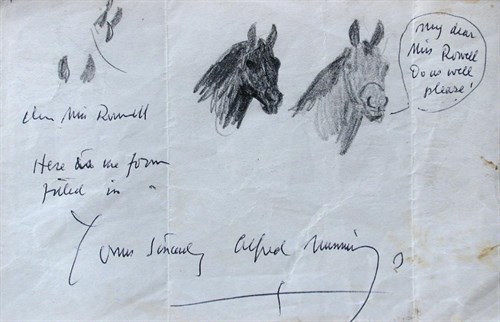 My dear
Miss Rowell
Do as well
please!
Dear Miss Rowell
Here are the form
filled in
Yours Sincerely Alfred Munnings